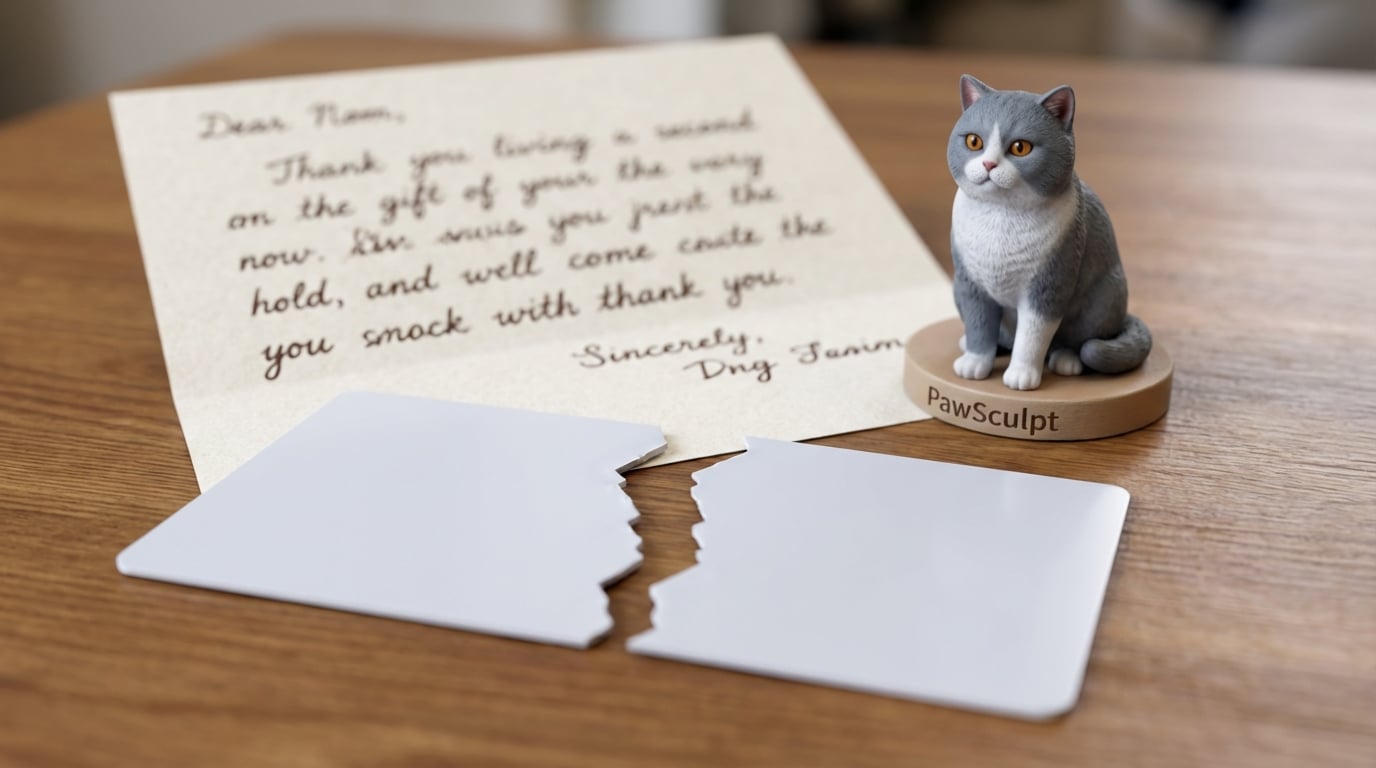 Dear Nom,
Thank you living a second
on the gift of your the very
now. you jrent the
hold, and well come coute the
you smock with thank you.
Sincerely,
Dng Fanim
PawSculpt